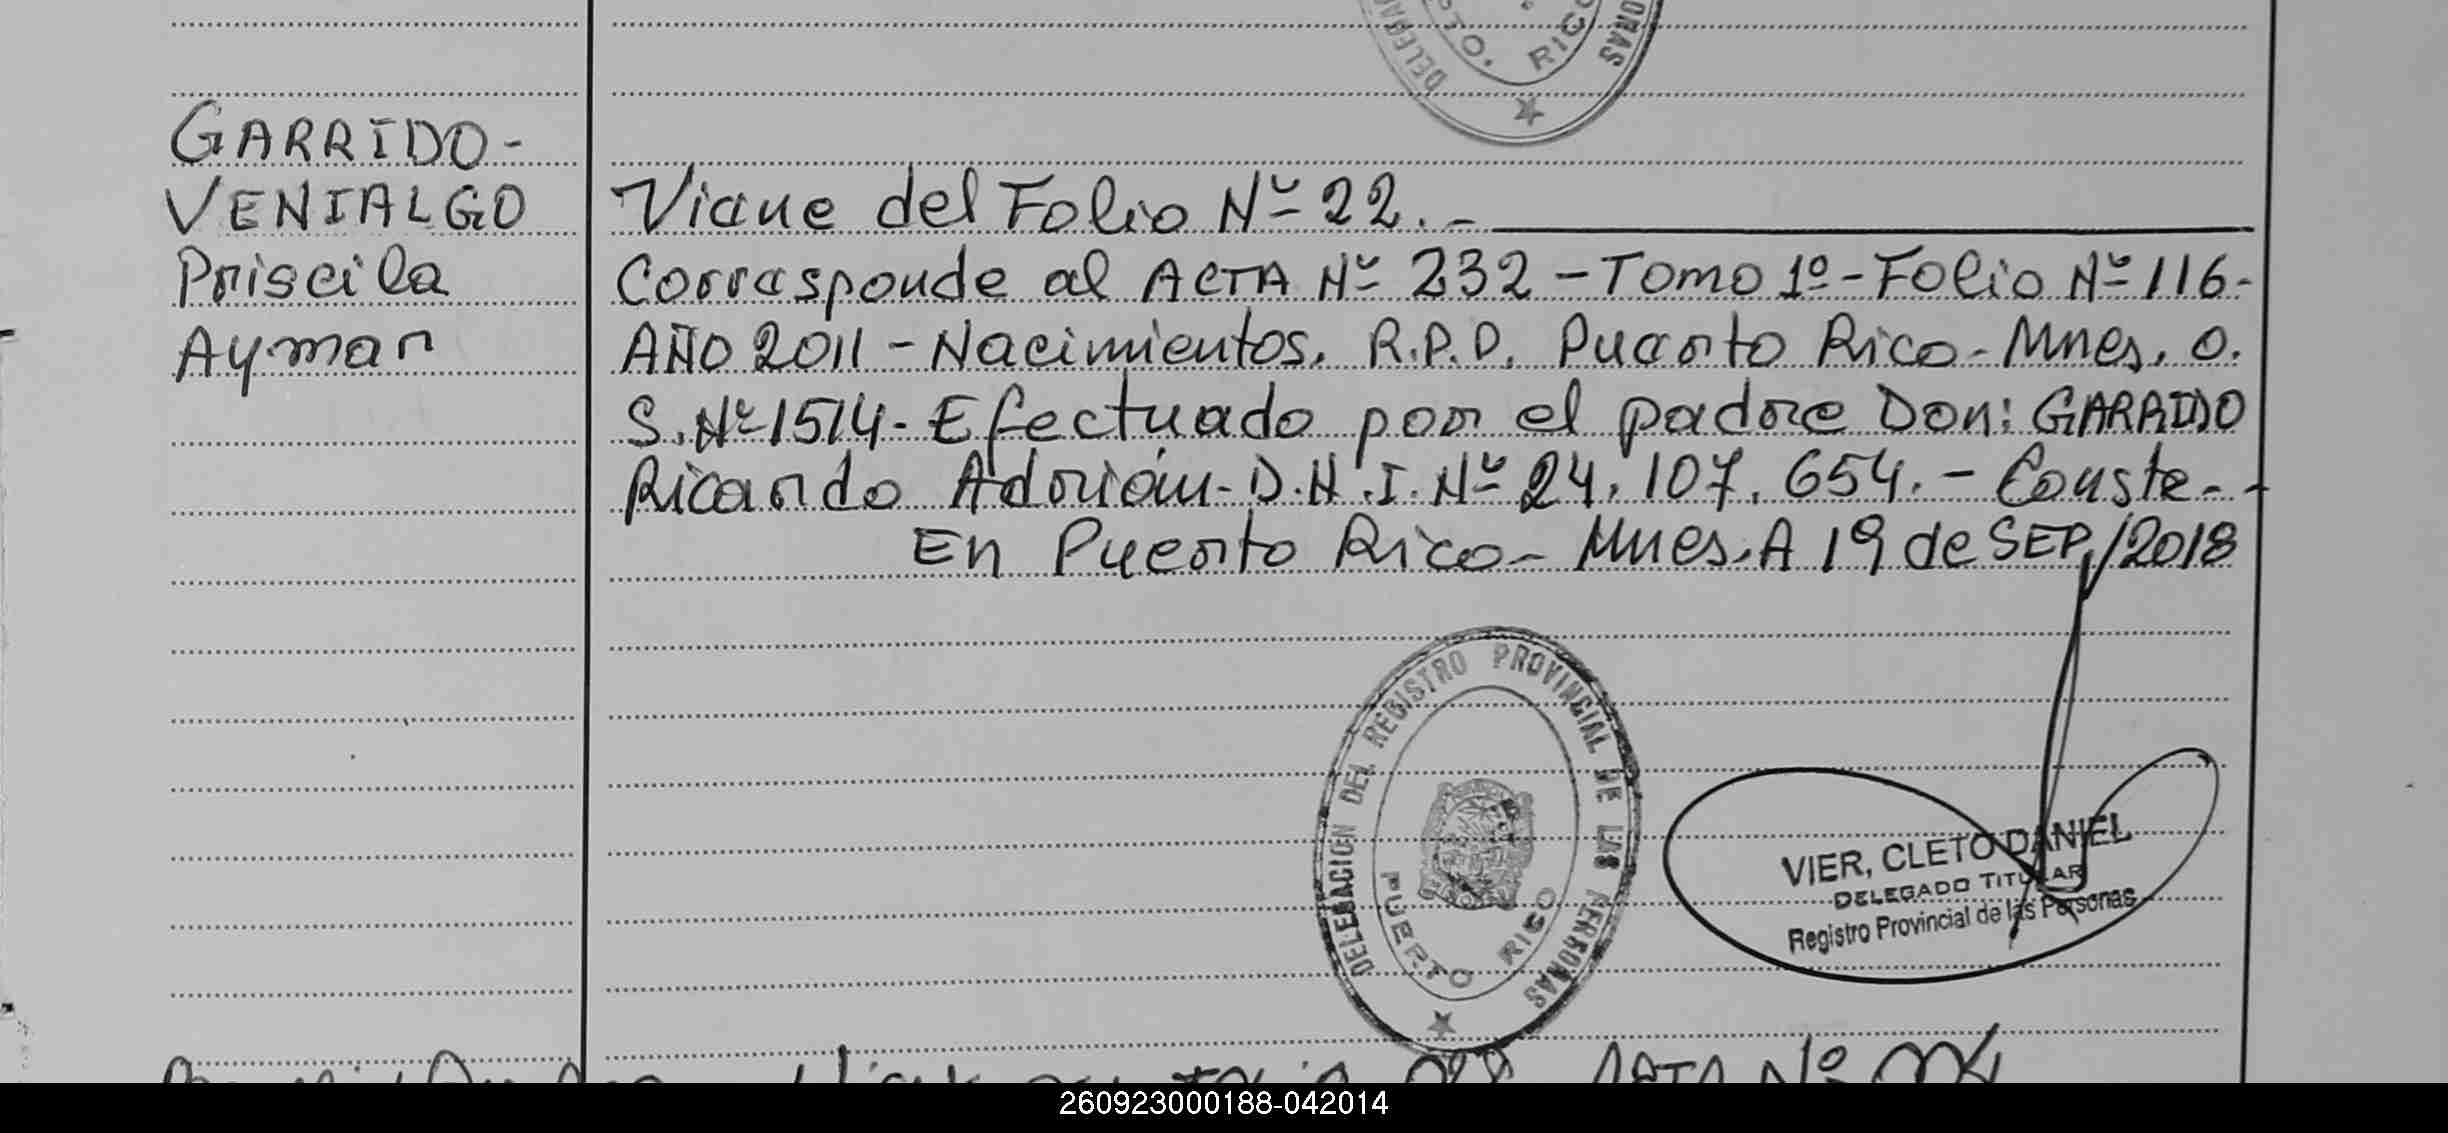 GARRIDO-
VENIALGO
Priscila
Aymar
Viene del Folio Nº 22.-
Corresponde al ACTA Nº 232 - Tomo 1º - Folio Nº 116-
AÑO 2011 - Nacimientos. R.P.P. Puerto Rico - Mnes. O.
S. Nº 1514 - Efectuado por el padre Don: GARRIDO
Ricardo Adrián - D.N.I. Nº 24.107.654.- Conste.-
En Puerto Rico - Mnes. A 19 de SEP/2018
DELEGACION DEL REGISTRO PROVINCIAL DE LAS PERSONAS
PUERTO RICO
VIER, CLETO DANIEL
DELEGADO TITULAR
Registro Provincial de las Personas
260923000188-042014